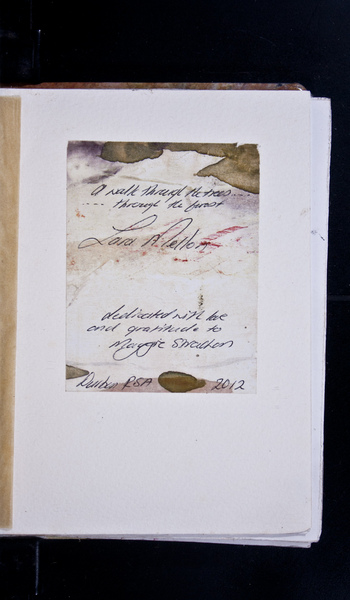 a walk through the trees....
.... through the forest
Lara Mellon
dedicated with love
and gratitude to
Maggie Strachan
Durban RSA 2012